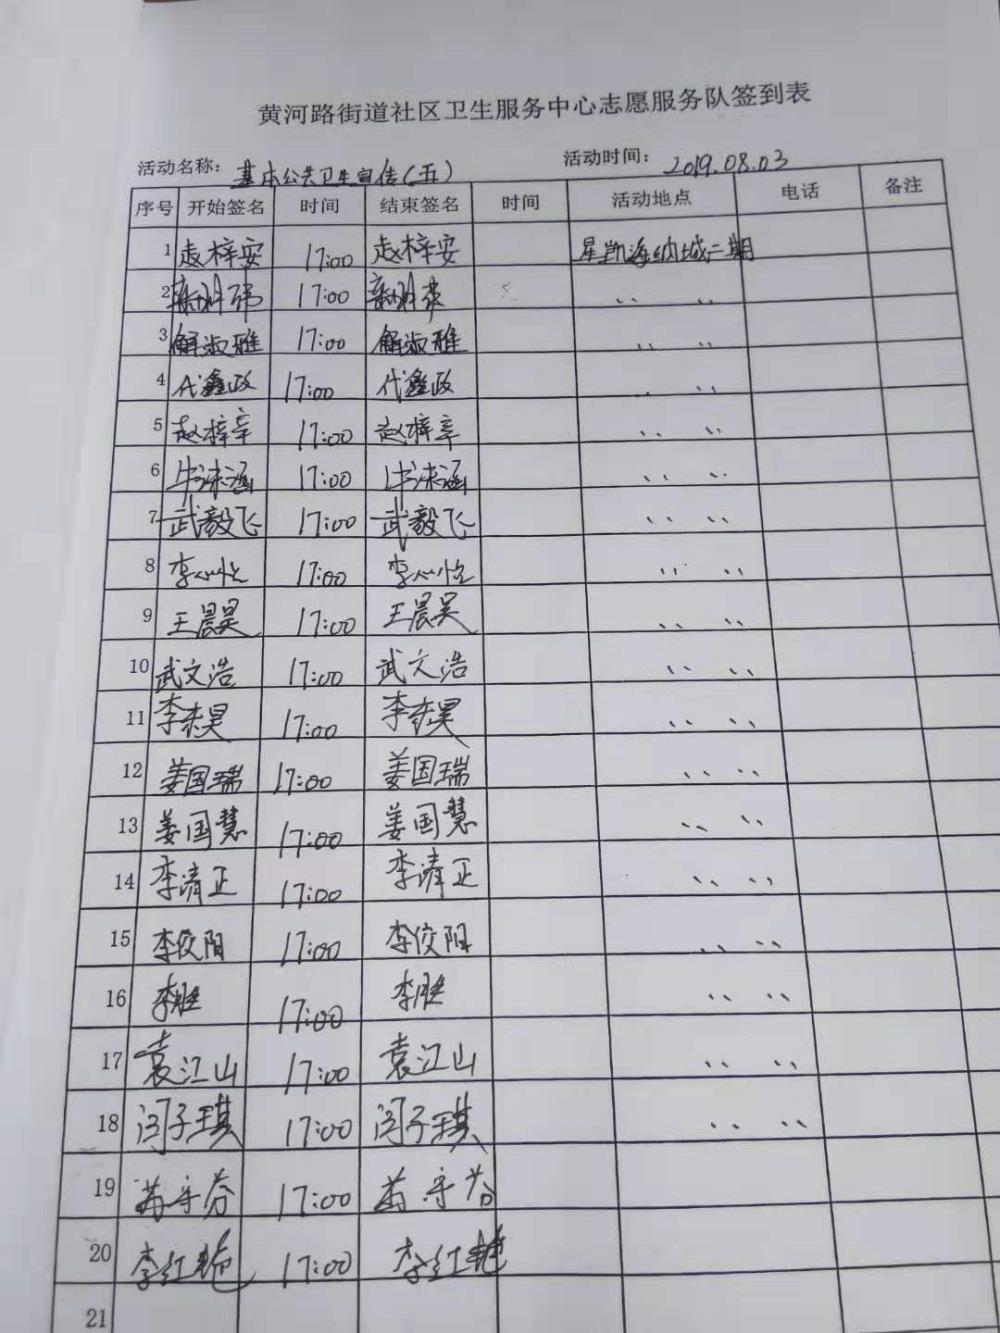 黄河路街道社区卫生服务中心志愿服务队签到表
活动名称: 基本公共卫生宣传(五) 活动时间: 2019.08.03
序号 开始签名 时间 结束签名 时间 活动地点 电话 备注
1 赵梓安 17:00 赵梓安 星凯海纳城二期
2 17:00 〃 〃
3 解淑雅 17:00 解淑雅 〃 〃
4 代鑫政 17:00 代鑫政 〃
5 赵梓辛 17:00 赵梓辛 〃 〃
6 17:00 〃 〃
7 武毅飞 17:00 武毅飞 〃 〃
8 李心怡 17:00 李心怡 〃 〃
9 王晨昊 17:00 王晨昊 〃 〃
10 武文浩 17:00 武文浩 〃 〃
11 李奕昊 17:00 李奕昊 〃 〃
12 姜国瑞 17:00 姜国瑞 〃 〃
13 姜国慧 17:00 姜国慧 〃 〃
14 李清正 17:00 李清正 〃 〃
15 李俊阳 17:00 李俊阳 〃 〃
16 17:00 〃 〃
17 袁江山 17:00 袁江山 〃 〃
18 闫子琪 17:00 闫子琪 〃 〃
19 17:00
20 李红艳 17:00 李红艳
21